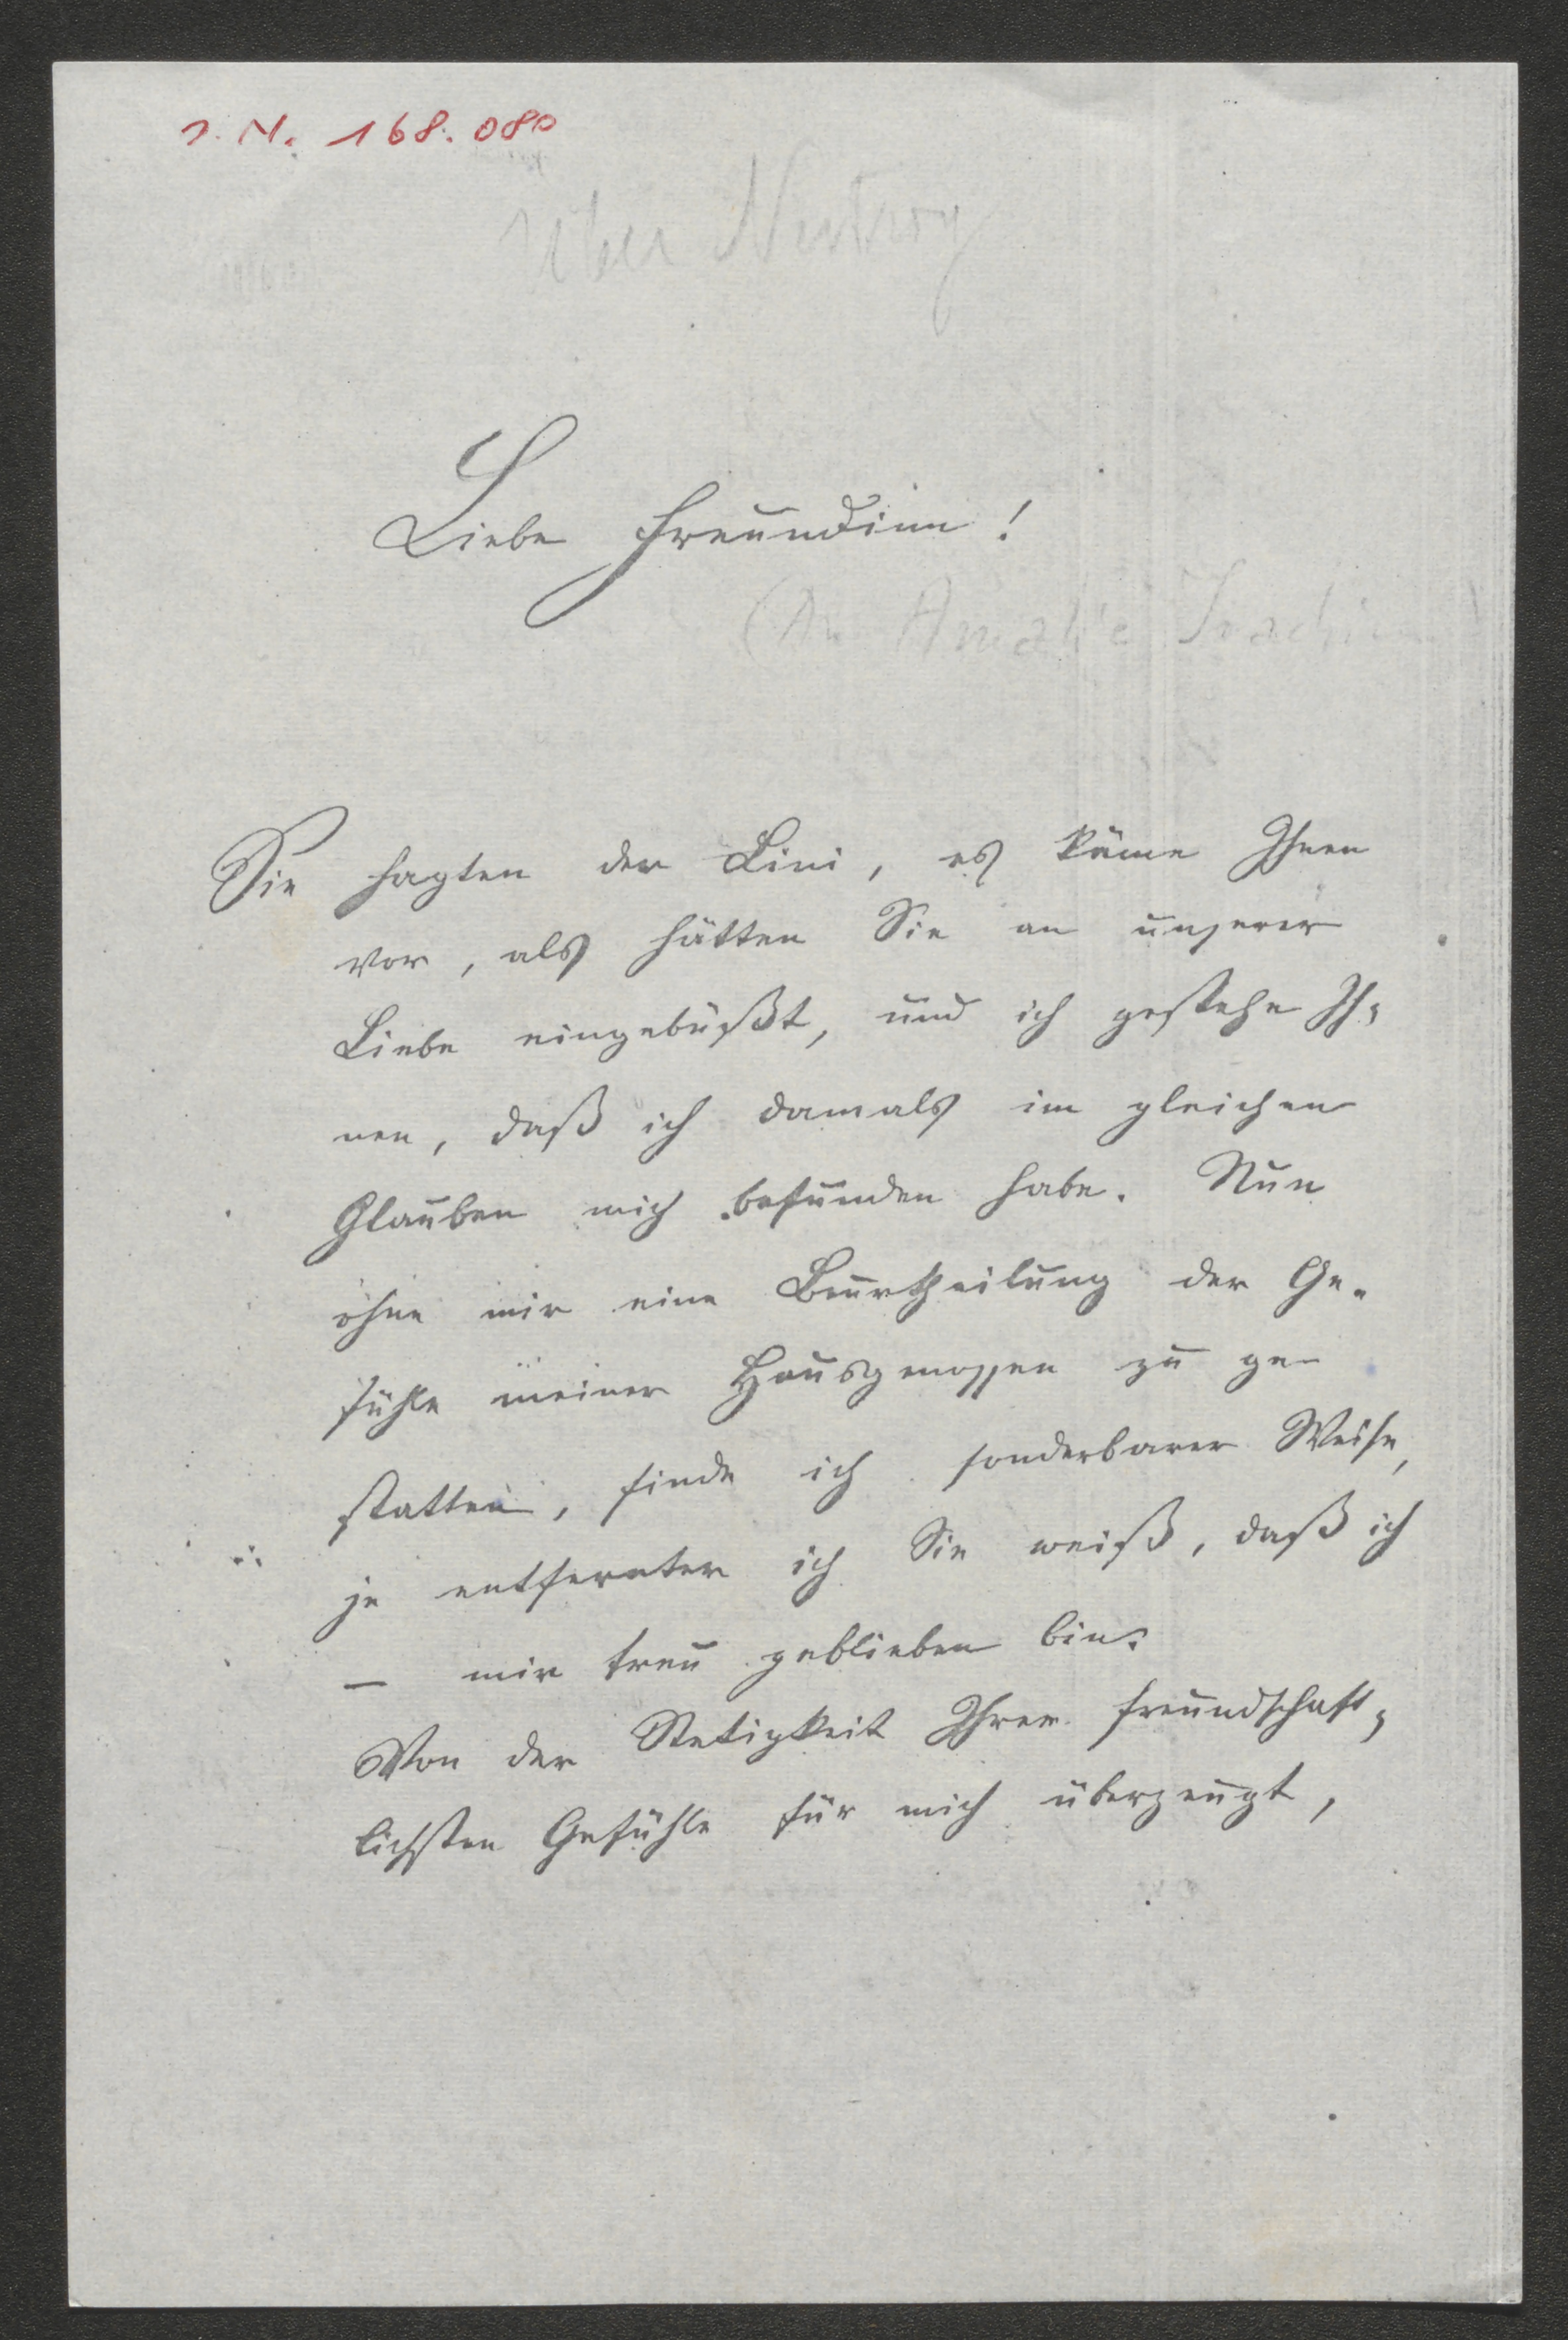 I. N. 168.080
Über Nestroy
Liebe Freundinn!
(An Amalie Joachim)
Sie sagten der Lini, es käme Ihnen
vor, als hätten Sie an unserer
Liebe eingebüßt, und ich gestehe Ih-
nen, daß ich damals im gleichen
Glauben mich befunden habe. Nun
ohne mir eine Beurtheilung der Ge-
fühle meiner Hausgenossen zu ge-
statten, finde ich sonderbarer Weise,
je entfernter ich Sie weiß, daß ich
– mir treu geblieben bin.
Von der Stetigkeit Ihrer freundschaft-
lichsten Gefühle für mich überzeugt,